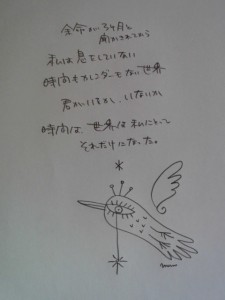 余命が3ヶ月と
聞かされてから
私は息をしていない
時間もカレンダーもない世界
君がいるか、いないか
時間は、世界は私にとって
それだけになった。